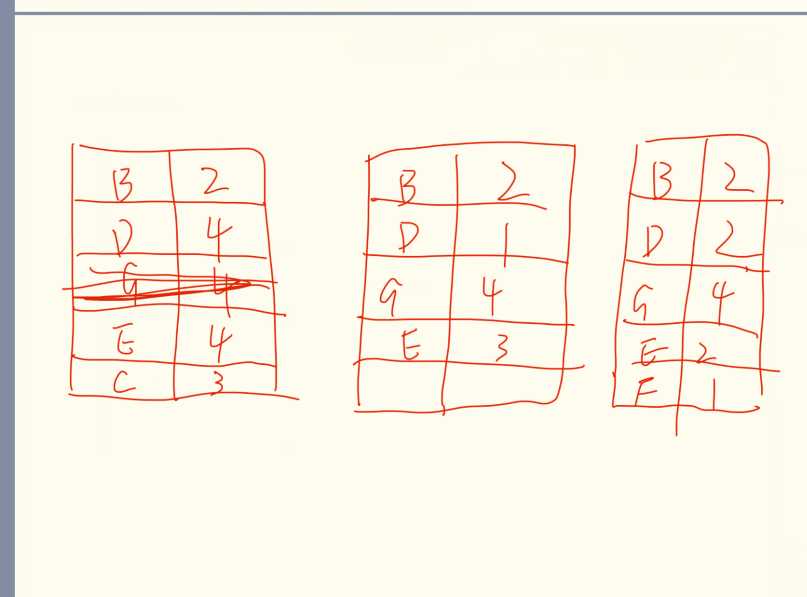 B 2
D 4
G 4
E 4
C 3
B 2
D 1
G 4
E 3
B 2
D 2
G 4
E 2
F 1